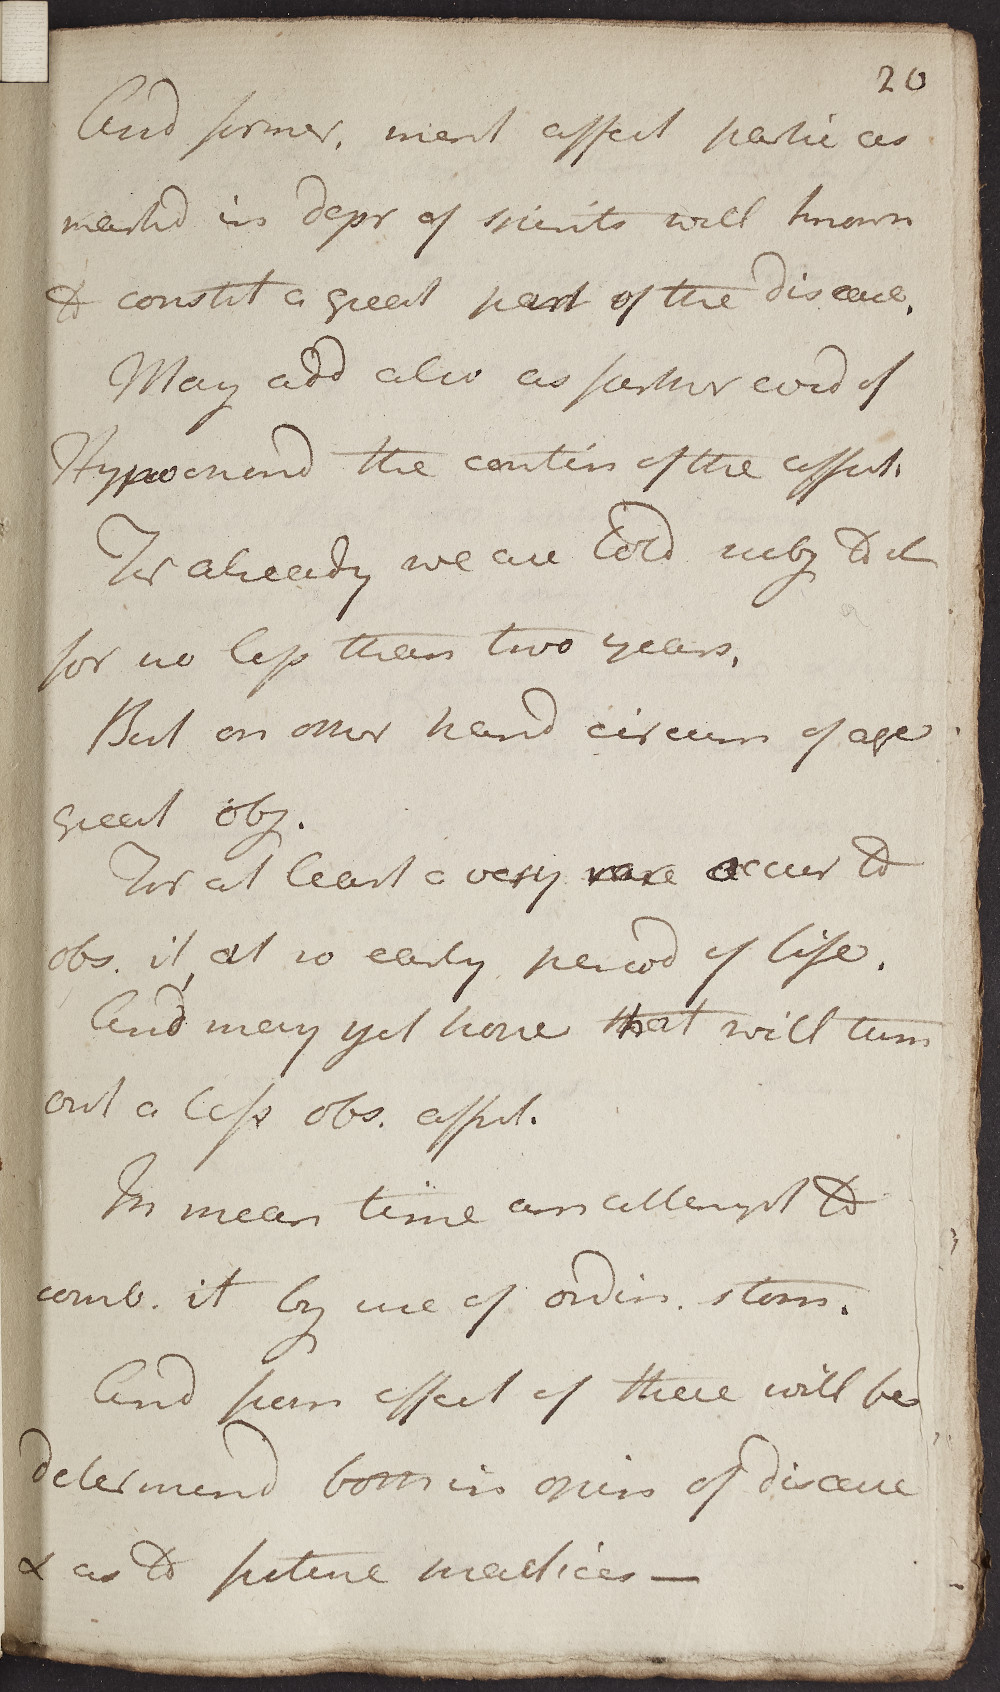 20
And former, ment affect partic as
markd in depr of spirits well known
& constit a great part of the disease.
May add also as farther evid of
Hypochond the contin of the affect.
For already we are told subj to it
for no less than two years.
But on other hand circum of age
great obj.
For at least a very rare occur to
obs. it, at so early period of life.
And may yet hope that will turn
out a less obs. affect.
In mean time an attempt to
comb. it by use of ordin. stom.
And from effect of these will be
determind both in opin of disease
& as to future practices —